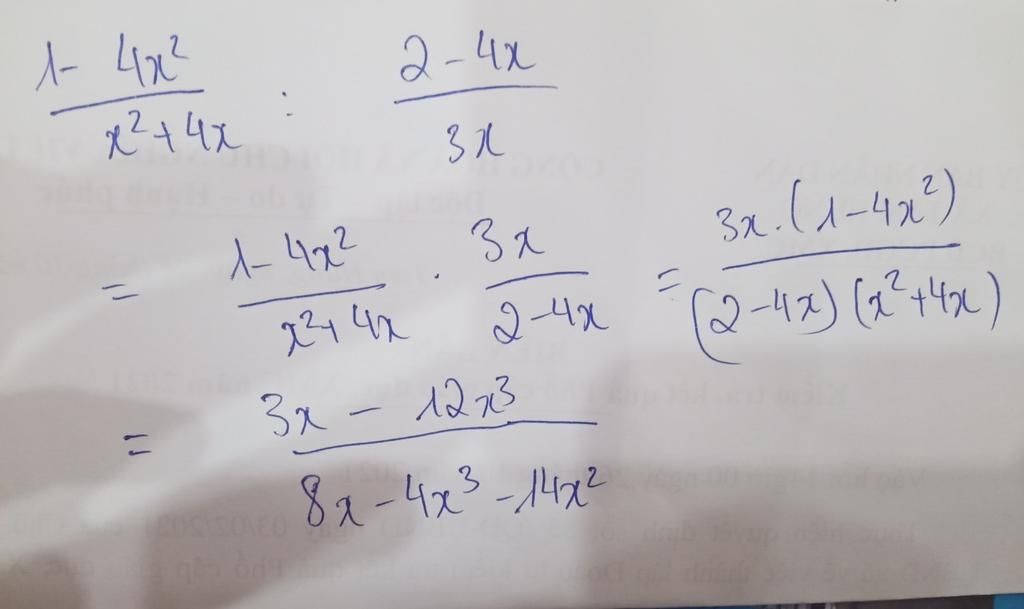 (1 - 4x²)/(x² + 4x) : (2 - 4x)/(3x)
= (1 - 4x²)/(x² + 4x) . (3x)/(2 - 4x) = (3x.(1 - 4x²))/((2 - 4x)(x² + 4x))
= (3x - 12x³)/(8x - 4x³ - 14x²)